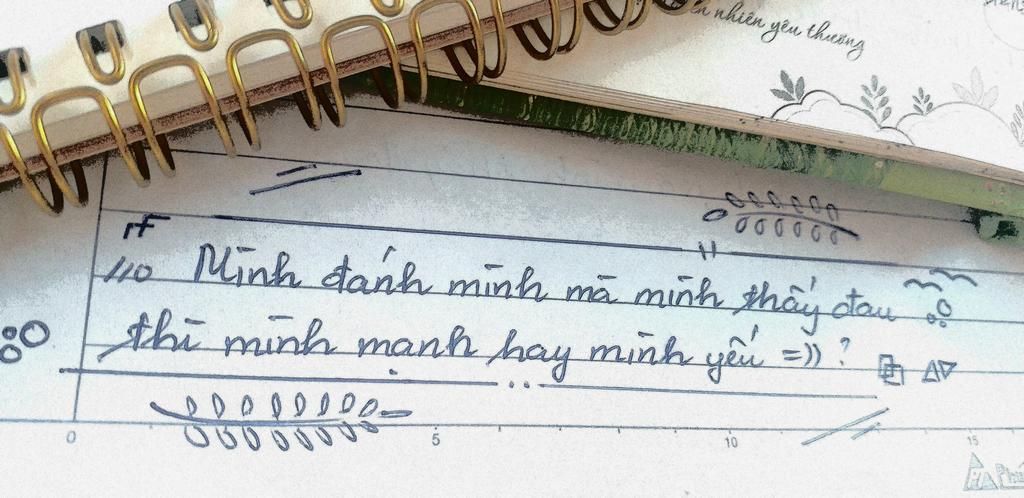 nhiên yêu thương
Mình đánh mình mà mình thấy đau
thì mình mạnh hay mình yếu =)) ?
0 5 10 15